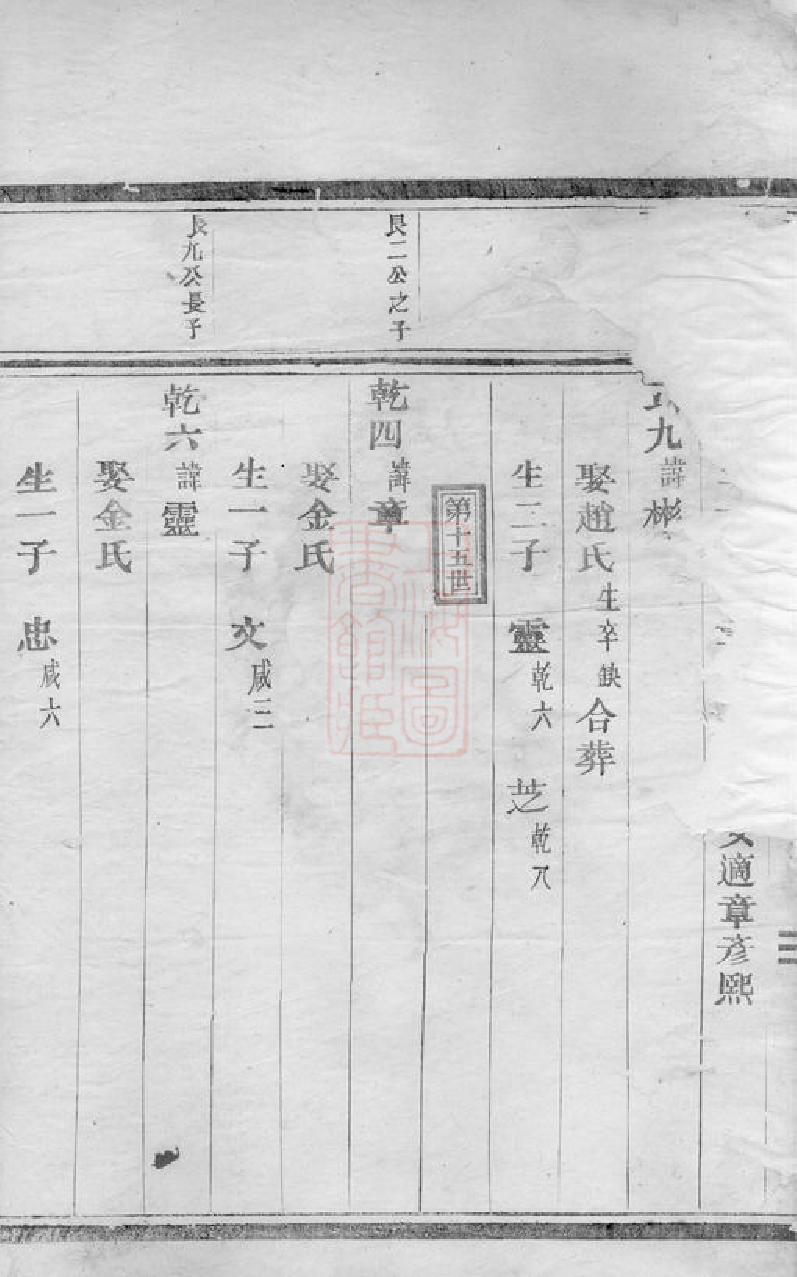 女適章彥熙
九諱彬
娶趙氏生卒缺合葬
生二子 靈乾六 芝乾八
第十五世
艮二公之子
乾四諱章
娶金氏
生一子 文咸三
艮九公長子
乾六諱靈
娶金氏
生一子 忠咸六
上海圖書館藏